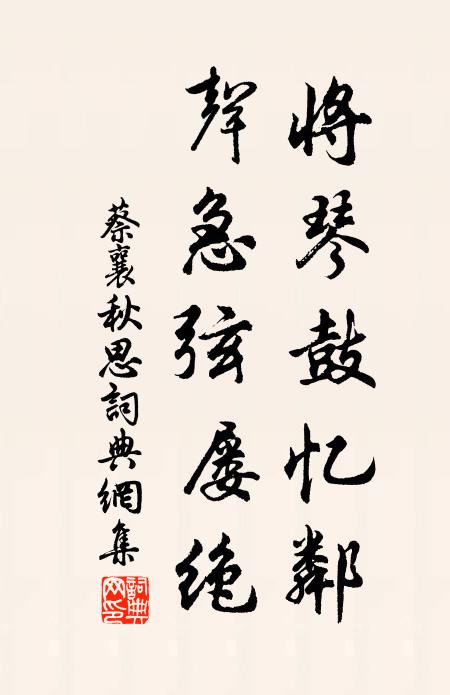 将琴鼓忆鄰
聲急弦屡绝
蔡襄秋思詞典網集
詞典网印